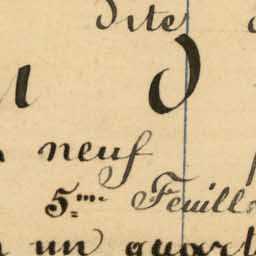 dite
neuf
5me Feuill
un quart